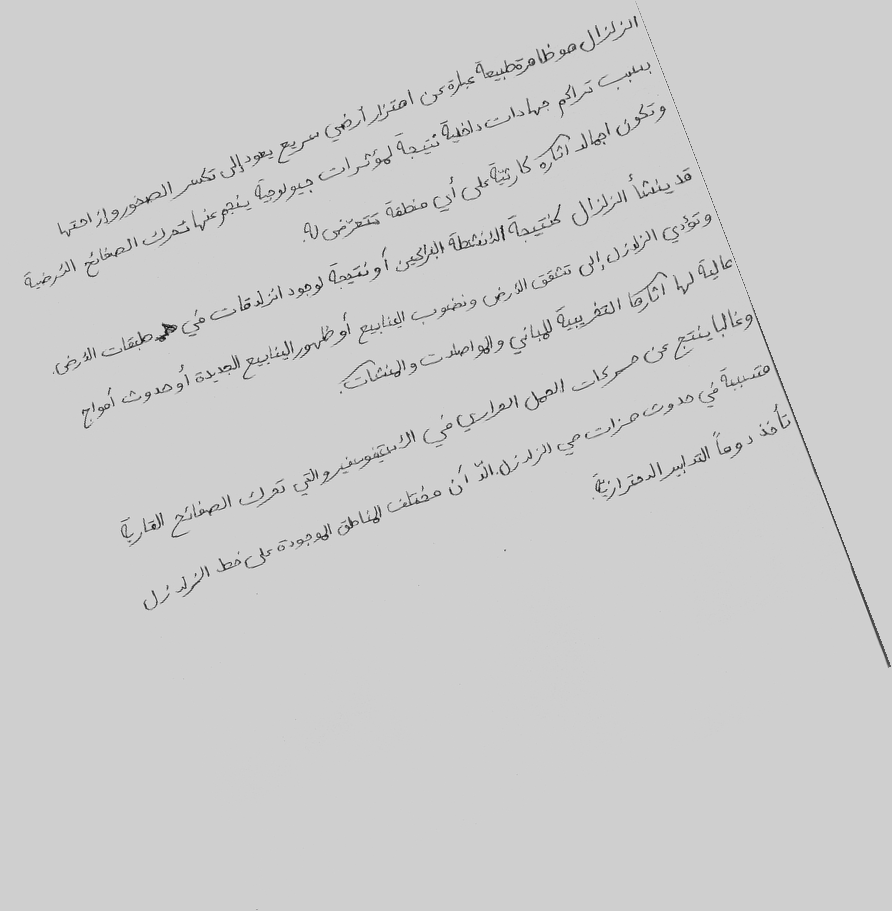 الزلزال هو ظاهرة طبيعة عبارة عن اهتزاز أرضي سريع يعود إلى تكسر الصخور وإزاحتها
بسبب تراكم جهادات داخلية نتيجة لمؤثرات جيولوجية ينجم عنها تحرك الصفائح الأرضية
وتكون اجمالا اثاره كارثيّة على أي منطقة تتعرّض له.
قد ينشأ الزلزال كنتيجة لأنشطة البراكين أو نتيجة لوجود انزلاقات في طبقات الأرض.
وتؤدي الزلازل إلى تشقق الأرض ونضوب الينابيع أو ظهور الينابيع الجديدة أو حدوث أمواج
عالية لها اثارها التخريبية للمباني والمواصلات والمنشات.
وغالبا ينتج عن حركات الحمل الحراري في الأستينوسفير والتي تحرك الصفائح القارية
متسببة في حدوث هزات هي الزلازل. الاّ أن مختلف المناطق الموجودة على خط الزلازل
تأخذ دوماً التدابير الاحترازية.